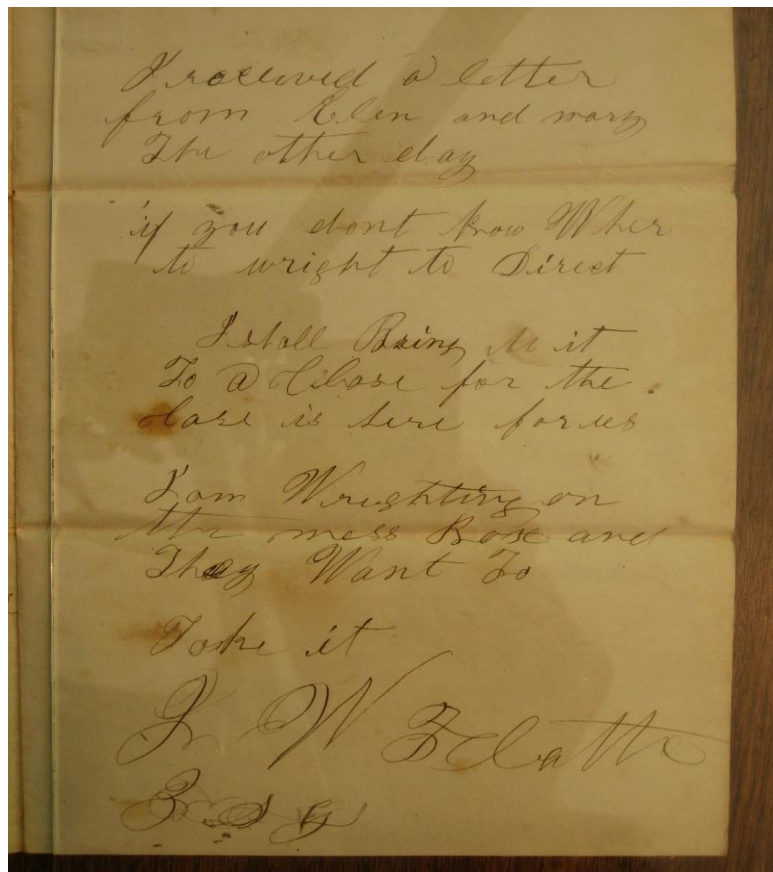 I received a letter
from Elen and mary
The other day
if you dont know Wher
to wright to Direct
I shall Bring it
To a Close for the
is here for us
I am Wrighting on
the mess Box and
They Want To
Take it
W